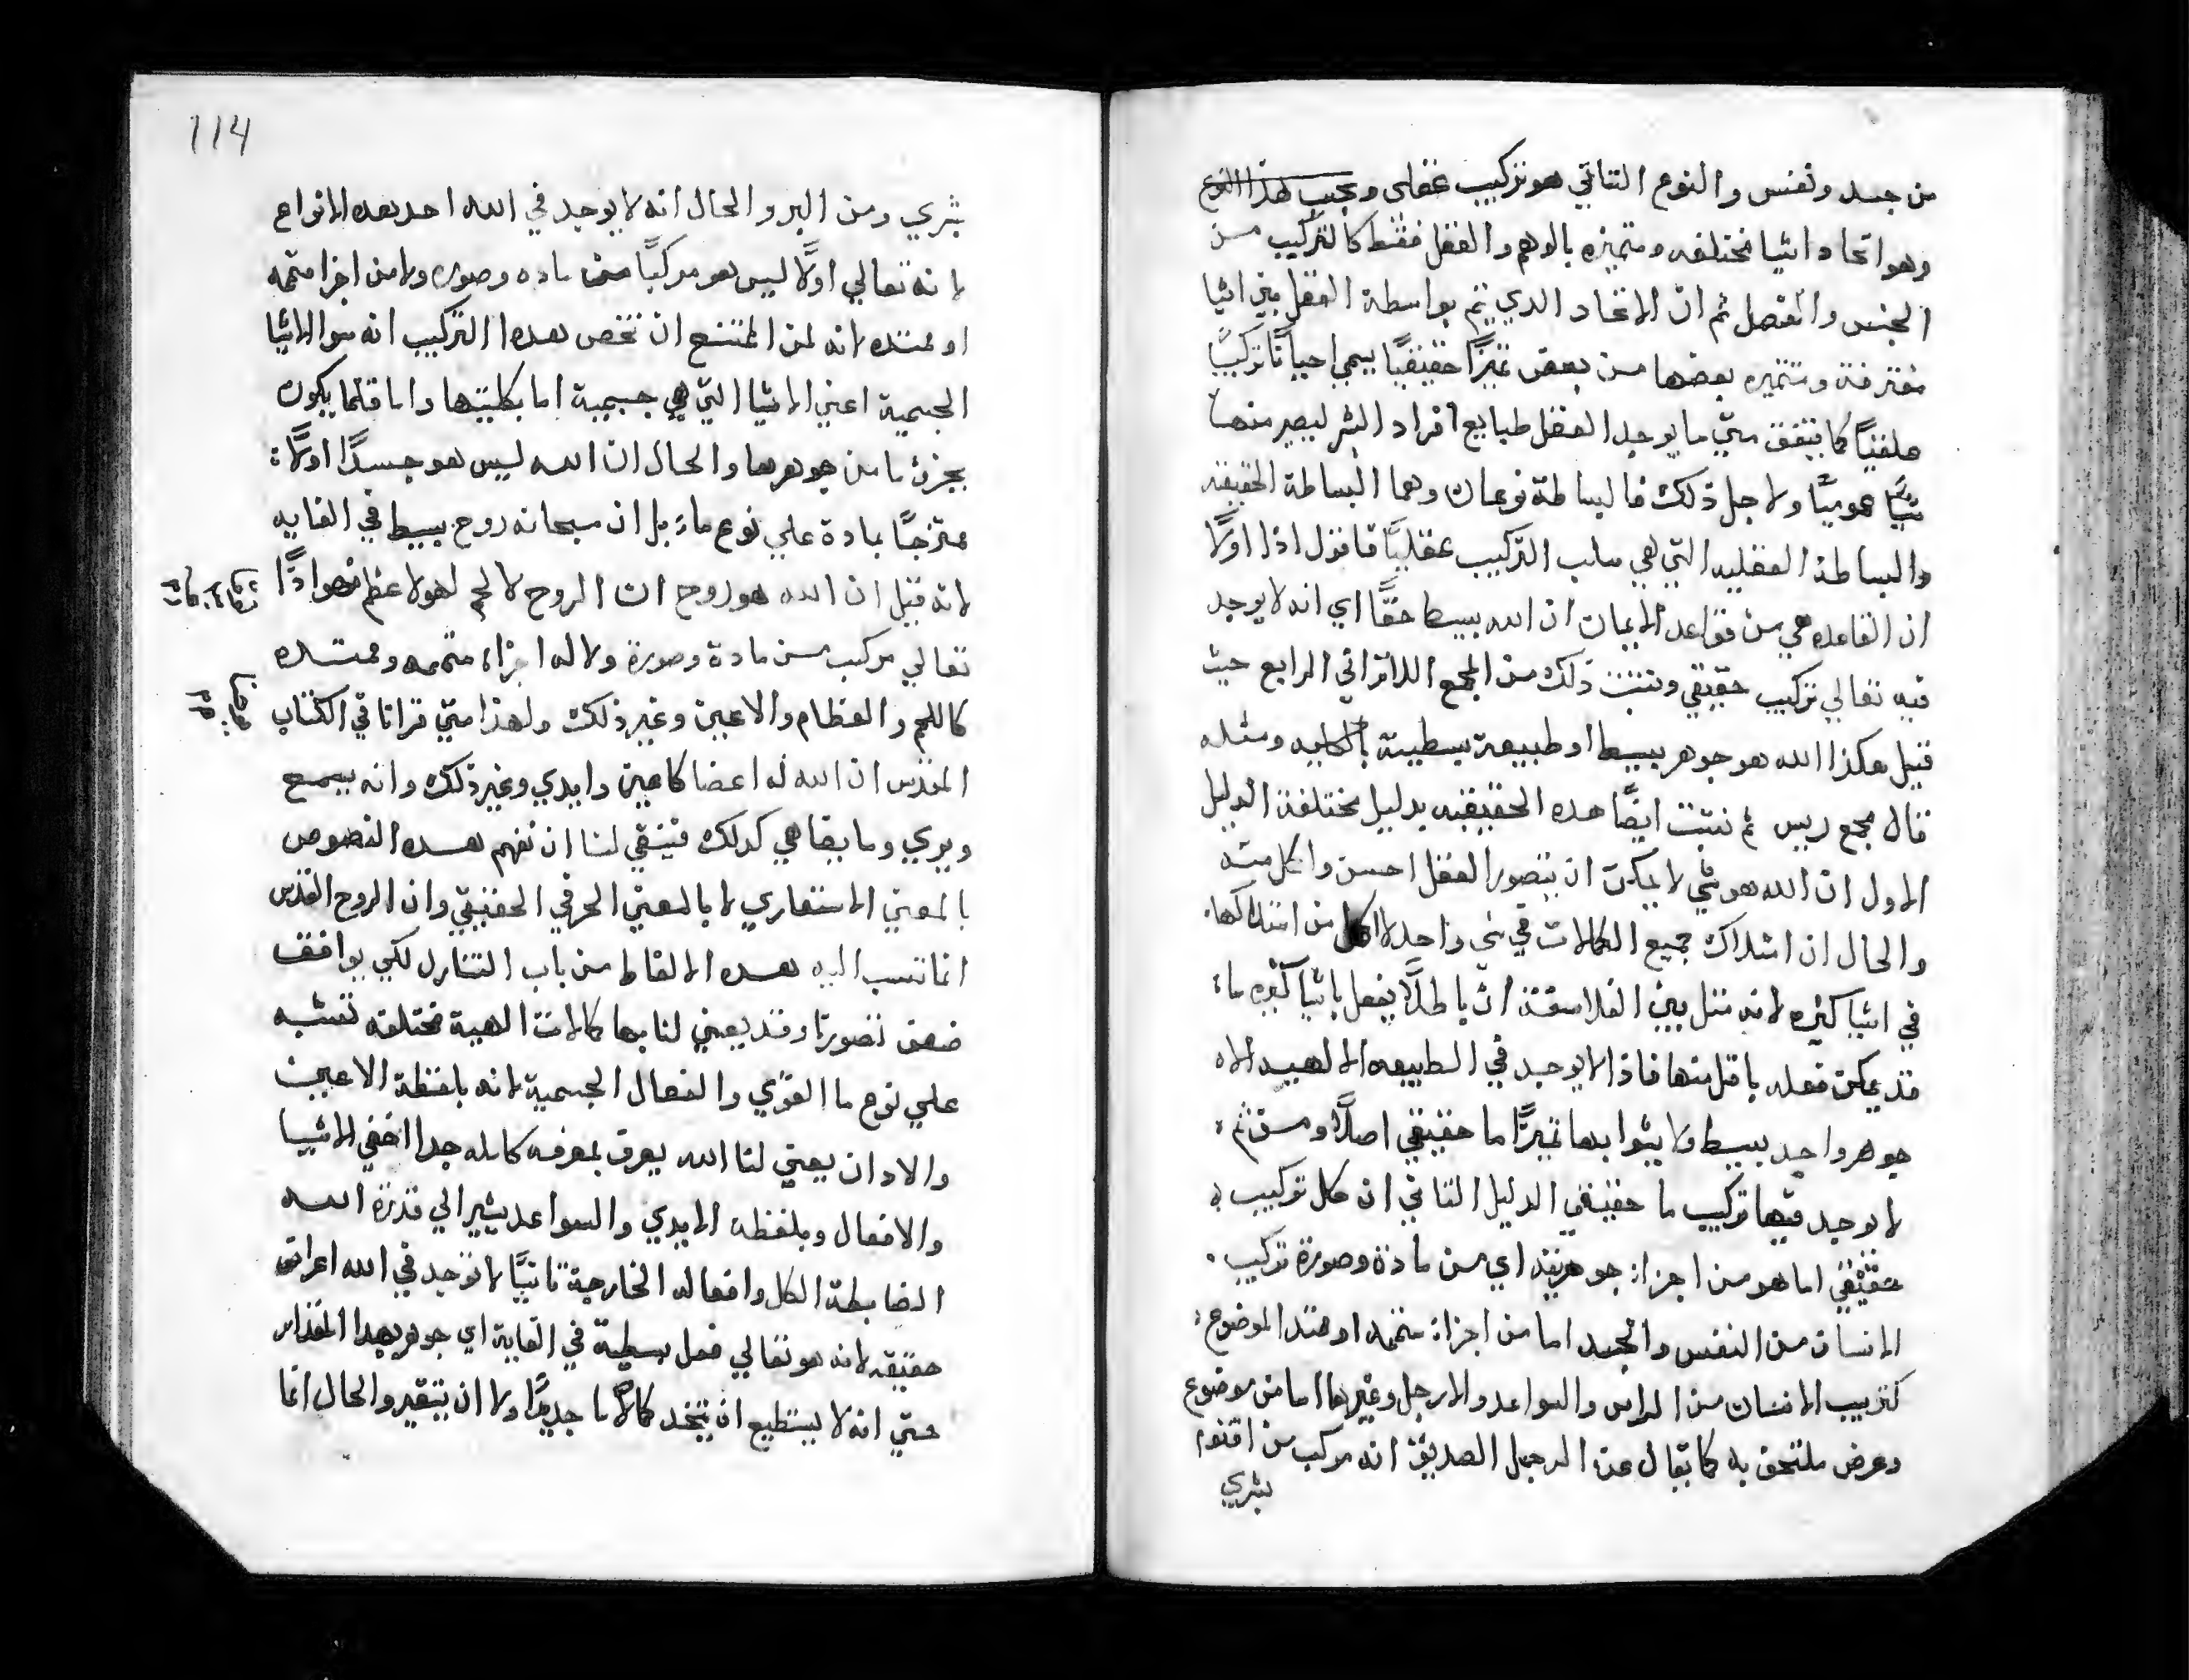 من جسد ونفس والنوع الثاني هو تركيب عقلي ويجب لهذا النوع
وهو اتحاد اشيا مختلفه ومتميزه بالوهم والعقل فقط كالتركيب من
الجنس والفصل ثم ان الاتحاد الدي يتم بواسطة العقل بين اشيا
مفترقة ومتميزه بعضها من بعض تميزًا حقيقيًا يسمي احيانًا تركيبًا
كما يتفق متي ما يوحد العقل طبايع افراد البشر ليصير منها
شيًا عموميًا ولاجل ذلك فالبساطة نوعان وهما البساطة الحقيقه
والبساطة العقليه التي هي سلب التركيب عقليًا فاقول اذا اولًا
ان القاعده هي من قواعد الايمان ان الله بسيط حقًا اي انه لا يوجد
فيه تعالي تركيب حقيقي ونثبت ذلك من المجمع اللاتراني الرابع حيث
قيل هكذا الله هو جوهر بسيط او طبيعة بسيطة بالكليه ومثله
قال مجمع ريمس ثم نثبت ايضًا هده الحقيقه بدليل مختلفة الدليل
الاول ان الله هو شي لا يمكن ان يتصور العقل احسن واكمل منه
والحال ان امتلاك جميع الكمالات في شي واحد لاكمل من امتلاكها
في اشيا كثيره لانه مثل بين الفلاسفة ان باطلًا يفعل باشيا كثيره ما
قد يمكن فعله باقل منها فاذا لا يوجد في الطبيعه الالهيه الا
جوهر واحد بسيط ولا يشوابها تميزًا ما حقيقي اصلًا ومن ثم
لا يوجد فيها تركيب ما حقيقي الدليل الثاني ان كل تركيب
حقيقي اما هو من اجزا جوهريه اي من مادة وصورة تركيب
الانسان من النفس والجسد اما من اجزا متممه او ممتد الموضوع
كتركيب الانسان من الراس والسواعد والارجل وغيرها اما من موضوع
وعرض ملتحق به كما يقال عن الرجل الصديق انه مركب من اقنوم
بشري
114
بشري ومن البر والحال انه لا يوجد في الله احد هده الانواع
لانه تعالي اولًا ليس هو مركبًا من ماده وصوره ولا من اجزا متممه
او ممتده لانه لمن الممتنع ان تخص هده التركيب انه سوا الاشيا
الجسمية اعني الاشيا التي هي جسمية اما بكليتها واما قلما يكون
بجزئ ما من جوهرها والحال ان الله ليس هو جسدًا اولًا
ممتزجًا بمادة علي نوع ما بل ان سبحانه روح بسيط في الغايه
لانه قيل ان الله هو روح ان الروح لا لحم له ولا عظم فهو اذًا
تعالي مركب من مادة وصورة ولا له اجزاء متممه وممتده
كاللحم والعظام والاعين وغير ذلك ولهذا متي قرانا في الكتاب
المقدس ان الله له اعضا كاعين وايدي وغير ذلك وانه يسمع
ويري وما يضاهي كدلك فينبغي لنا ان نفهم هده النصوص
بالمعني الاستعاري لا بالمعني الحرفي الحقيقي وان الروح القدس
انما تنسب اليه هده الالفاظ من باب التنازل لكي يوافق
ضعف تصورنا وقد يعني لنا بها كمالات الهية مختلفه تشبه
علي نوع ما القوي والفعال الجسمية لانه بلفظة الاعين
والادان يعني لنا الله يعرف بمعرفه كامله جدا اخفي الاشيا
والافعال وبلفظه الايدي والسواعد يشير الي قدرة الله
الضابطة الكل وافعاله الخارجية ثانيًا لا توجد في الله اعراض
حقيقه لانه هو تعالي فعل بسيطة في الغاية اي جوهر بهدا المقدار
حتي انه لا يستطيع ان يتخد كمالًا ما جديدًا ولا ان يتغير والحال انما